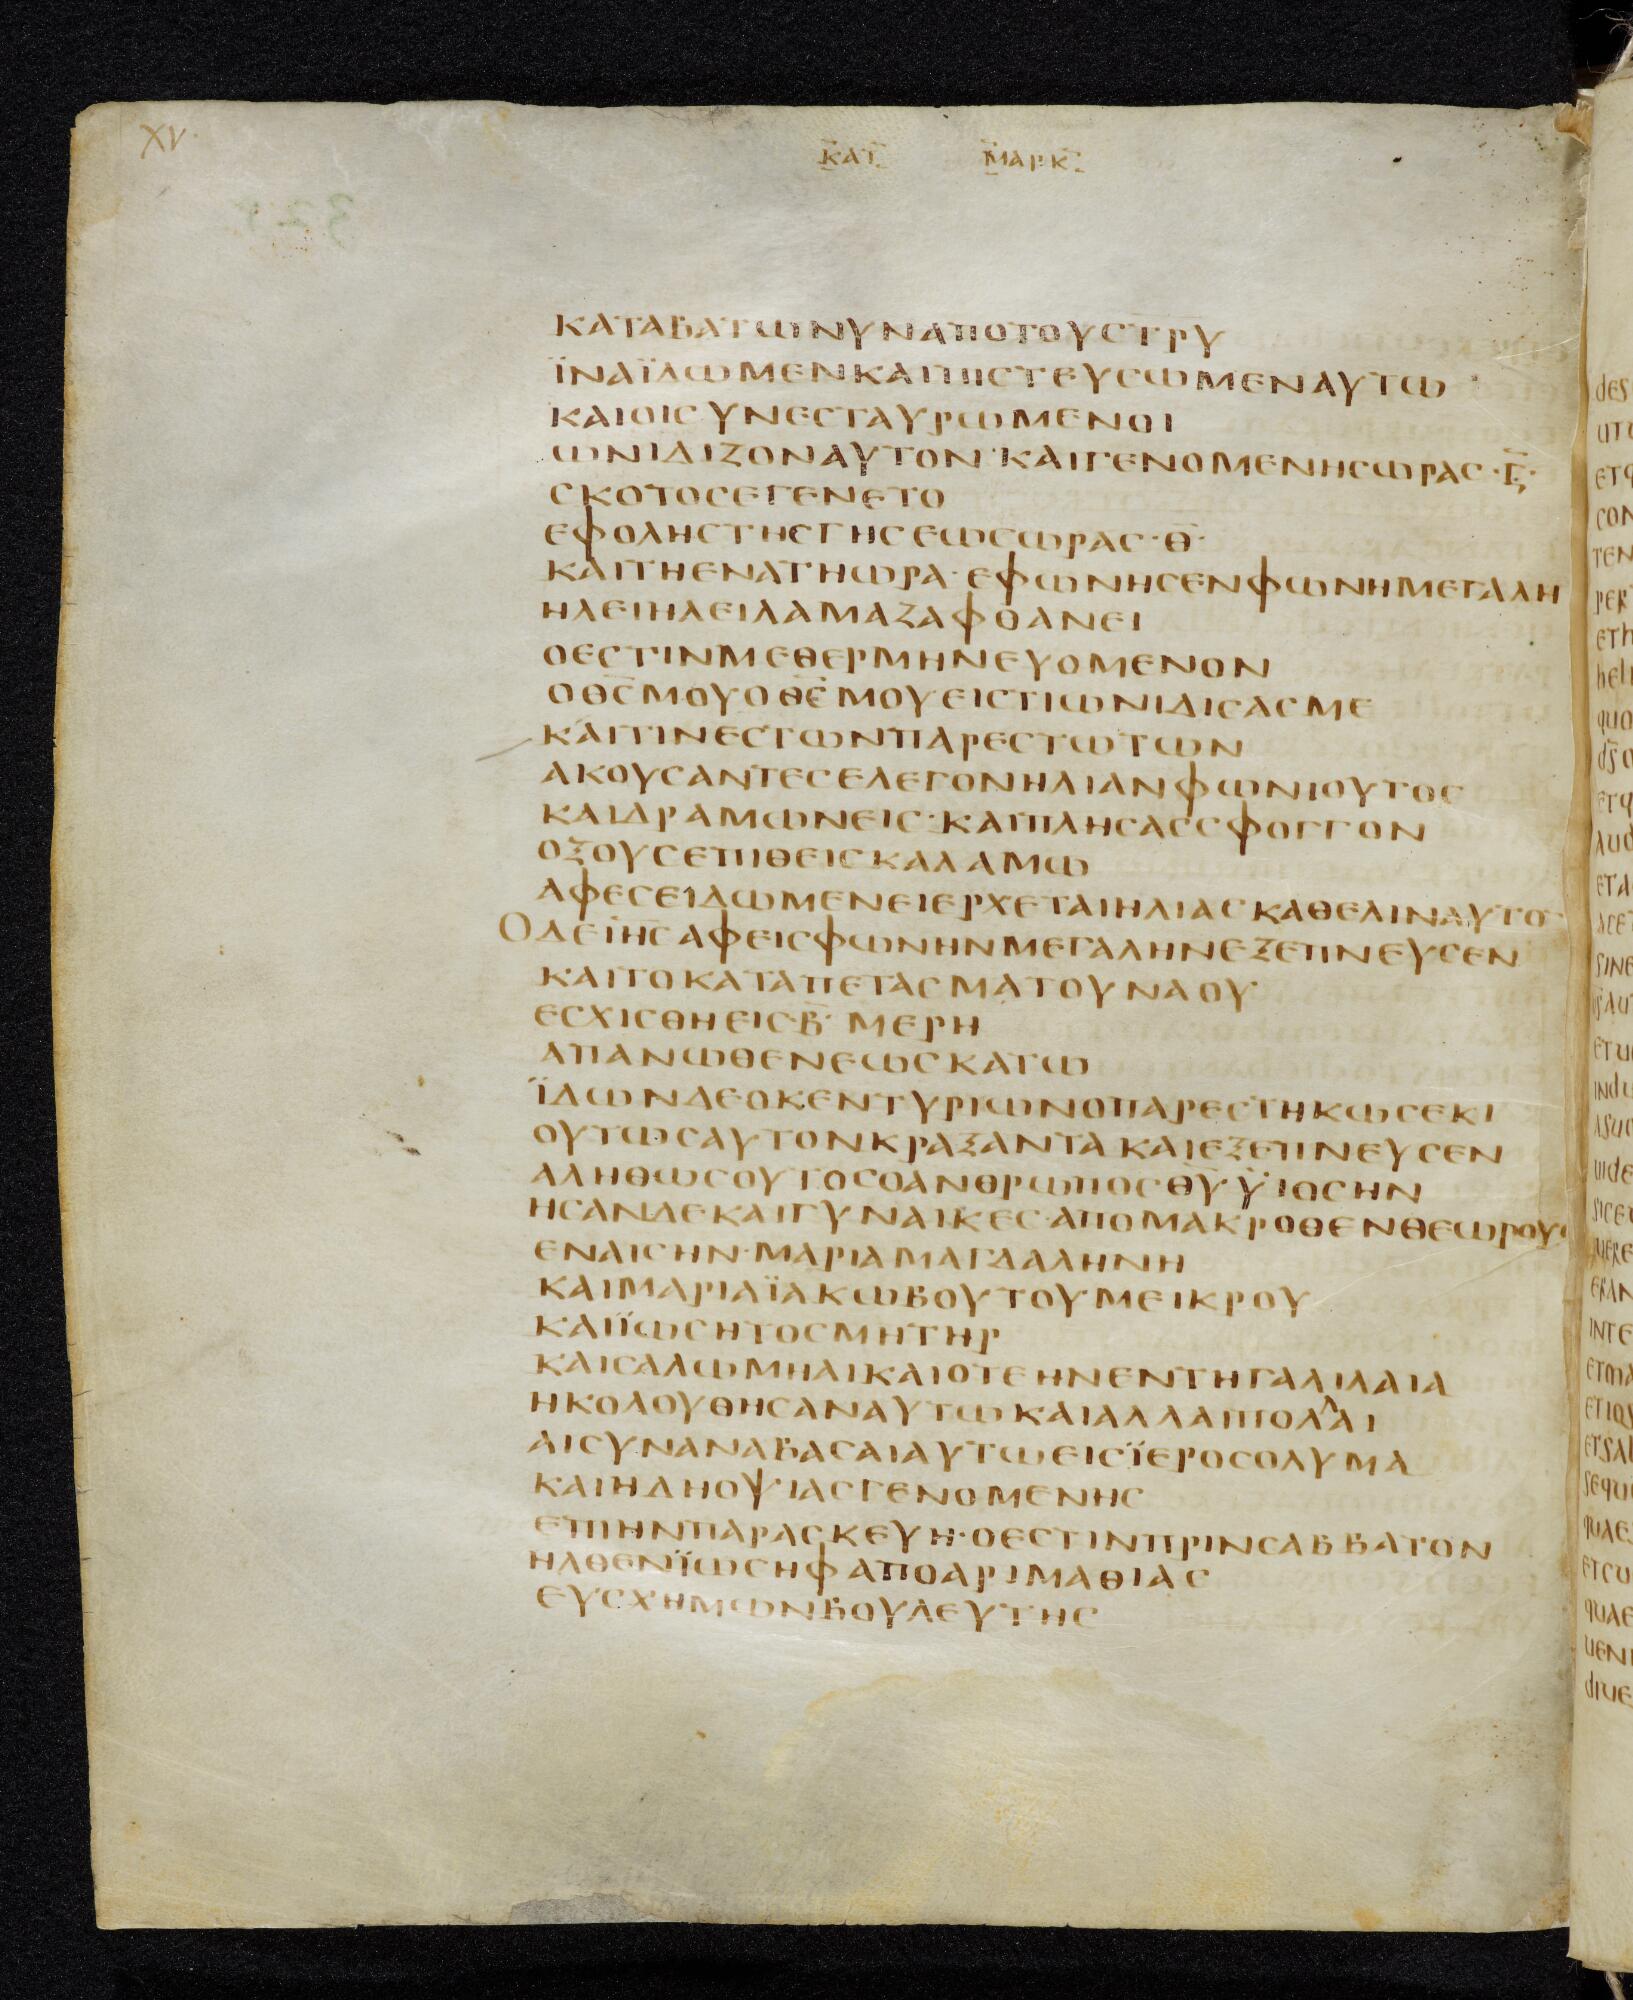 XV
ΚΑΤ ΜΑΡΚ
ΚΑΤΑΒΑΤΩΝΥΝΑΠΟΤΟΥΣΤΡΥ
ΪΝΑΪΔΩΜΕΝΚΑΙΠΙΣΤΕΥΣΩΜΕΝΑΥΤΩ
ΚΑΙΟΙΣΥΝΕΣΤΑΥΡΩΜΕΝΟΙ
ΩΝΙΔΙΖΟΝΑΥΤΟΝ·ΚΑΙΓΕΝΟΜΕΝΗΣΩΡΑΣ·Ϛ̅·
ΣΚΟΤΟΣΕΓΕΝΕΤΟ
ΕΦΟΛΗΣΤΗΣΓΗΣΕΩΣΩΡΑΣ·Θ̅·
ΚΑΙΤΗΕΝΑΤΗΩΡΑ·ΕΦΩΝΗΣΕΝΦΩΝΗΜΕΓΑΛΗ
ΗΛΕΙΗΛΕΙΛΑΜΑΖΑΦΘΑΝΕΙ
ΟΕΣΤΙΝΜΕΘΕΡΜΗΝΕΥΟΜΕΝΟΝ
ΟΘ̅Σ̅ΜΟΥΟΘ̅Σ̅ΜΟΥΕΙΣΤΙΩΝΙΔΙΣΑΣΜΕ
ΚΑΙΤΙΝΕΣΤΩΝΠΑΡΕΣΤΩΤΩΝ
ΑΚΟΥΣΑΝΤΕΣΕΛΕΓΟΝΗΛΙΑΝΦΩΝΙΟΥΤΟΣ
ΚΑΙΔΡΑΜΩΝΕΙΣ·ΚΑΙΠΛΗΣΑΣΣΦΟΓΓΟΝ
ΟΞΟΥΣΕΠΙΘΕΙΣΚΑΛΑΜΩ
ΑΦΕΣΕΙΔΩΜΕΝΕΙΕΡΧΕΤΑΙΗΛΙΑΣΚΑΘΕΛΙΝΑΥΤΟ̅
ΟΔΕΙ̅Η̅Σ̅ΑΦΕΙΣΦΩΝΗΝΜΕΓΑΛΗΝΕΞΕΠΝΕΥΣΕΝ
ΚΑΙΤΟΚΑΤΑΠΕΤΑΣΜΑΤΟΥΝΑΟΥ
ΕΣΧΙΣΘΗΕΙΣ·Β̅· ΜΕΡΗ
ΑΠΑΝΩΘΕΝΕΩΣΚΑΤΩ
ΪΔΩΝΔΕΟΚΕΝΤΥΡΙΩΝΟΠΑΡΕΣΤΗΚΩΣΕΚΙ
ΟΥΤΩΣΑΥΤΟΝΚΡΑΞΑΝΤΑΚΑΙΕΞΕΠΝΕΥΣΕΝ
ΑΛΗΘΩΣΟΥΤΟΣΟΑΝΘΡΩΠΟΣΘ̅Υ̅ΫΙΟΣΗΝ
ΗΣΑΝΔΕΚΑΙΓΥΝΑΙΚΕΣ·ΑΠΟΜΑΚΡΟΘΕΝΘΕΩΡΟΥΣ
ΕΝΑΙΣΗΝ·ΜΑΡΙΑΜΑΓΔΑΛΗΝΗ
ΚΑΙΜΑΡΙΑΪΑΚΩΒΟΥΤΟΥΜΕΙΚΡΟΥ
ΚΑΙΪΩΣΗΤΟΣΜΗΤΗΡ
ΚΑΙΣΑΛΩΜΗΑΙΚΑΙΟΤΕΗΝΕΝΤΗΓΑΛΙΛΑΙΑ
ΗΚΟΛΟΥΘΗΣΑΝΑΥΤΩΚΑΙΑΛΛΑΙΠΟΛΛΑΙ
ΑΙΣΥΝΑΝΑΒΑΣΑΙΑΥΤΩΕΙΣΪΕΡΟΣΟΛΥΜΑ
ΚΑΙΗΔΗΟΨΙΑΣΓΕΝΟΜΕΝΗΣ
ΕΠΙΗΝΠΑΡΑΣΚΕΥΗ·ΟΕΣΤΙΝΠΡΙΝΣΑΒΒΑΤΟΝ
ΗΛΘΕΝΪΩΣΗΦΑΠΟΑΡΙΜΑΘΙΑΣ
ΕΥΣΧΗΜΩΝΒΟΥΛΕΥΤΗΣ